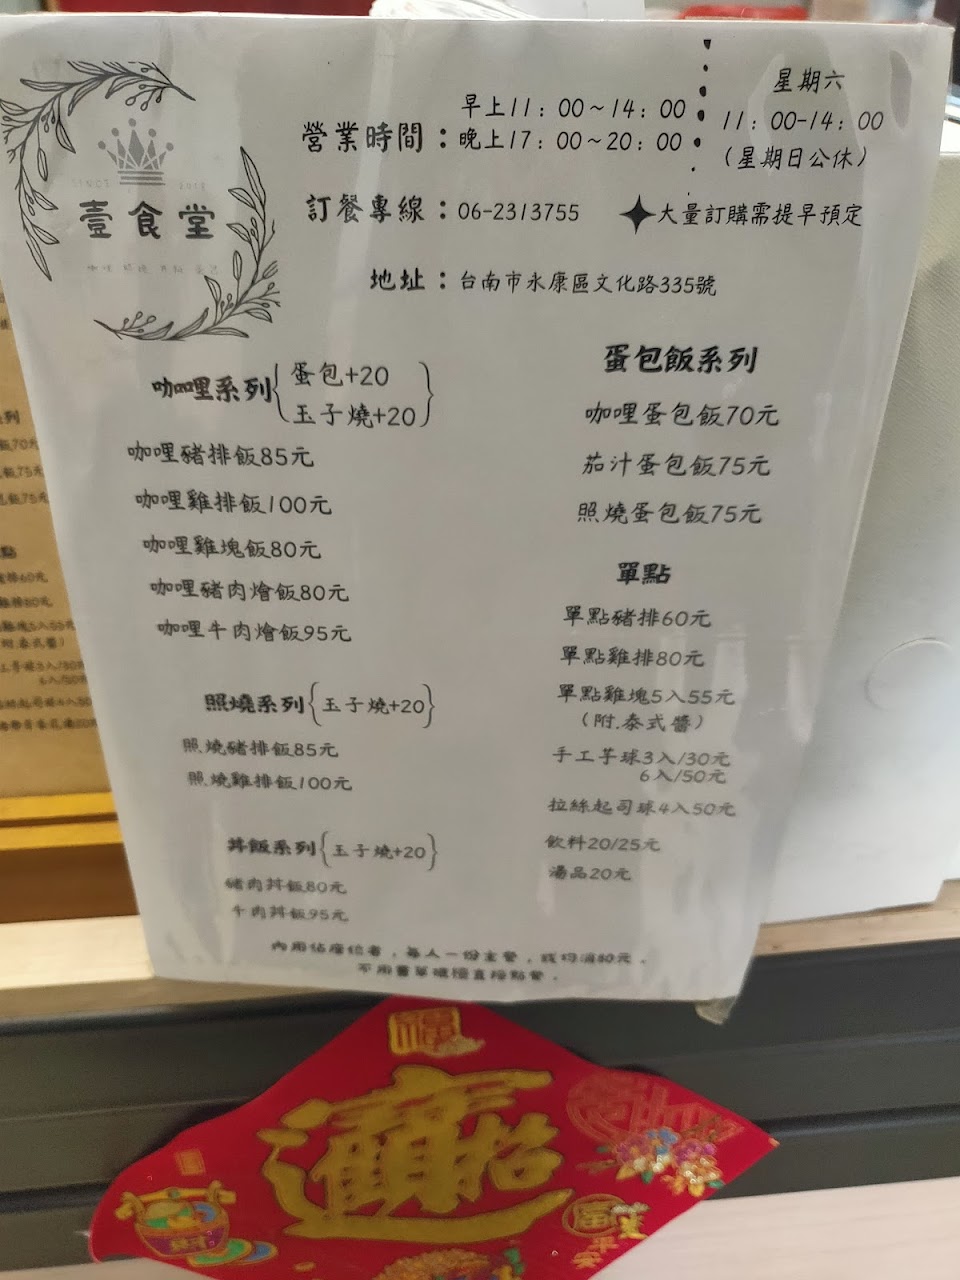 壹食堂
營業時間：早上11：00～14：00
晚上17：00～20：00
星期六
11：00-14：00
（星期日公休）
訂餐專線：06-2313755
大量訂購需提早預定
地址：台南市永康區文化路335號
咖哩系列{蛋包+20
玉子燒+20}
咖哩豬排飯85元
咖哩雞排飯100元
咖哩雞塊飯80元
咖哩豬肉燴飯80元
咖哩牛肉燴飯95元
照燒系列{玉子燒+20}
照燒豬排飯85元
照燒雞排飯100元
丼飯系列{玉子燒+20}
豬肉丼飯80元
牛肉丼飯95元
蛋包飯系列
咖哩蛋包飯70元
茄汁蛋包飯75元
照燒蛋包飯75元
單點
單點豬排60元
單點雞排80元
單點雞塊5入55元
（附.泰式醬）
手工芋球3入/30元
6入/50元
拉絲起司球4入50元
飲料20/25元
湯品20元
內用佔座位者，每人一份主餐，或均消80元。
不用畫單櫃檯直接點餐。
福
招財進寶